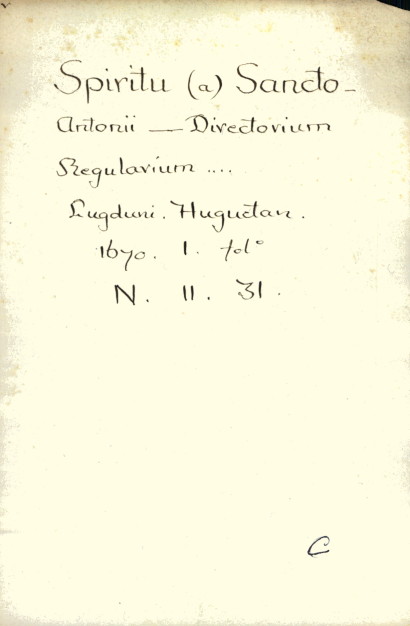 Spiritu (a) Sancto_
Antonii — Directorium
Regularium ....
Lugduni. Huguetan.
1670. I. folº
N. II. 31.
C